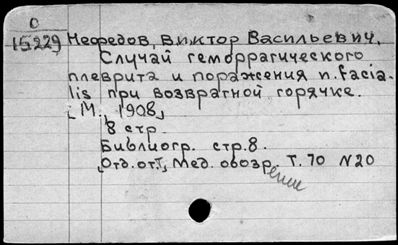 О
15229 Нефедов, Виктор Васильевич.
Случай геморрагического
плеврита и поражения n. facia-
lis при возвратной горячке.
[М., 1908]
8 стр.
Библиогр. стр. 8.
[Отд. отт.], Мед. обозрение Т. 70 N 20